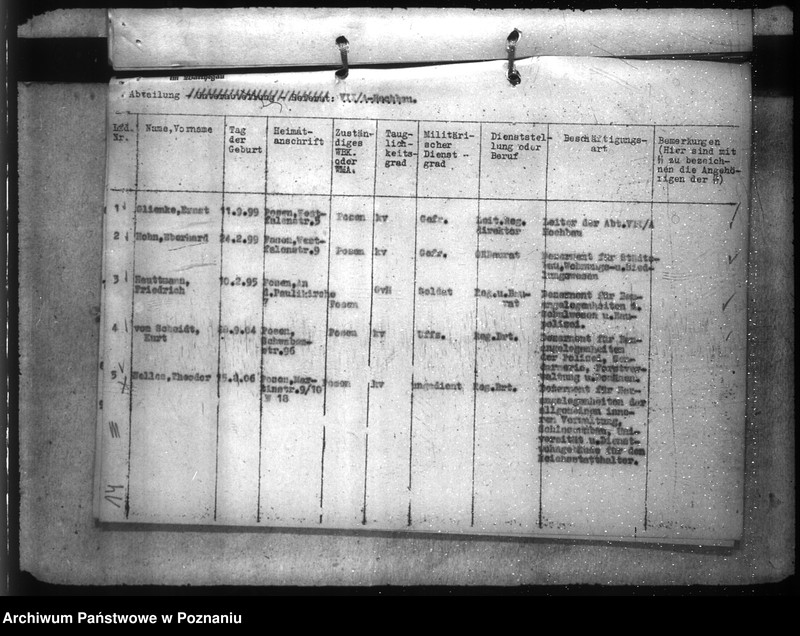 im Warthegau
Abteilung VIII/A-Hochbau.
Lfd. Nr. Name,Vorname Tag der Geburt Heimat-anschrift Zustän-diges WBK. oder WMA. Taug-lich-keits-grad Militäri-scher Dienst-grad Dienststel-lung oder Beruf Beschäftigungs-art Bemerkungen (Hier sind mit zu bezeich-nen die Angehö-rigen der )
1 Ernst 11.9.99 Posen,West-falenstr.5 Posen kv Gefr. Leit.Reg. direktor Leiter der Abt.VIII/A Hochbau
2 Eberhard 24.2.99 Posen,West-falenstr.9 Posen kv Gefr. Dezernent für Städte-bau,Wohnungs-u.Sied-lungswesen
3 Friedrich 10.2.95 Posen,An d.Paulikirche 7 Posen GvH Soldat Reg.u.Bau-rat Dezernent für Bau-angelegenheiten d. Schulwesen u.Bau-polizei.
4 von Scheidt, Kurt Posen, Schwaben-str.96 Posen kv Uffz. Reg.Brt. Dezernent für Bau-angelegenheiten der Polizei, Gen-darmerie, Forstver-waltung u.Domänen.
5 Theodor Posen,Mar-tinstr.9/10 W 18 Posen kv ungedient Reg.Brt. Dezernent für Bau-angelegenheiten der allgemeinen inne-ren Verwaltung, Schlossbau, Uni-versität u.Dienst-wohngebäude für den Reichsstatthalter.
14
Archiwum Państwowe w Poznaniu